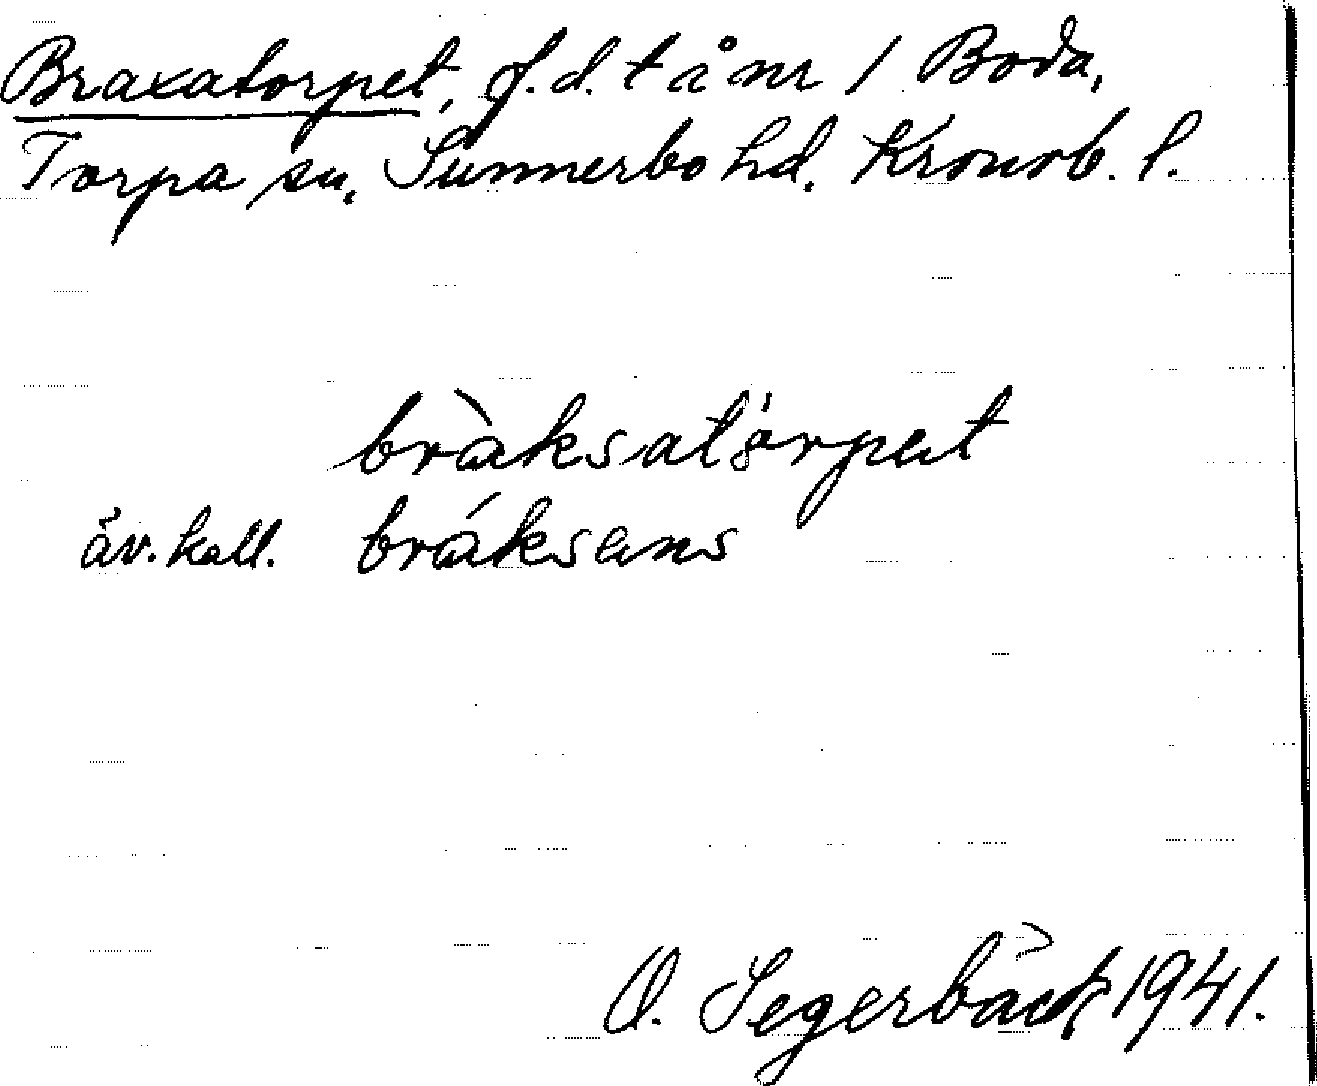 Braxatorpet, f.d. t å nr 1 Boda,
Torpa sn, Sunnerbo hd. Kronob. l.
bràksatórpet
äv. kall. bráksens
O. Segerbäck 1941.